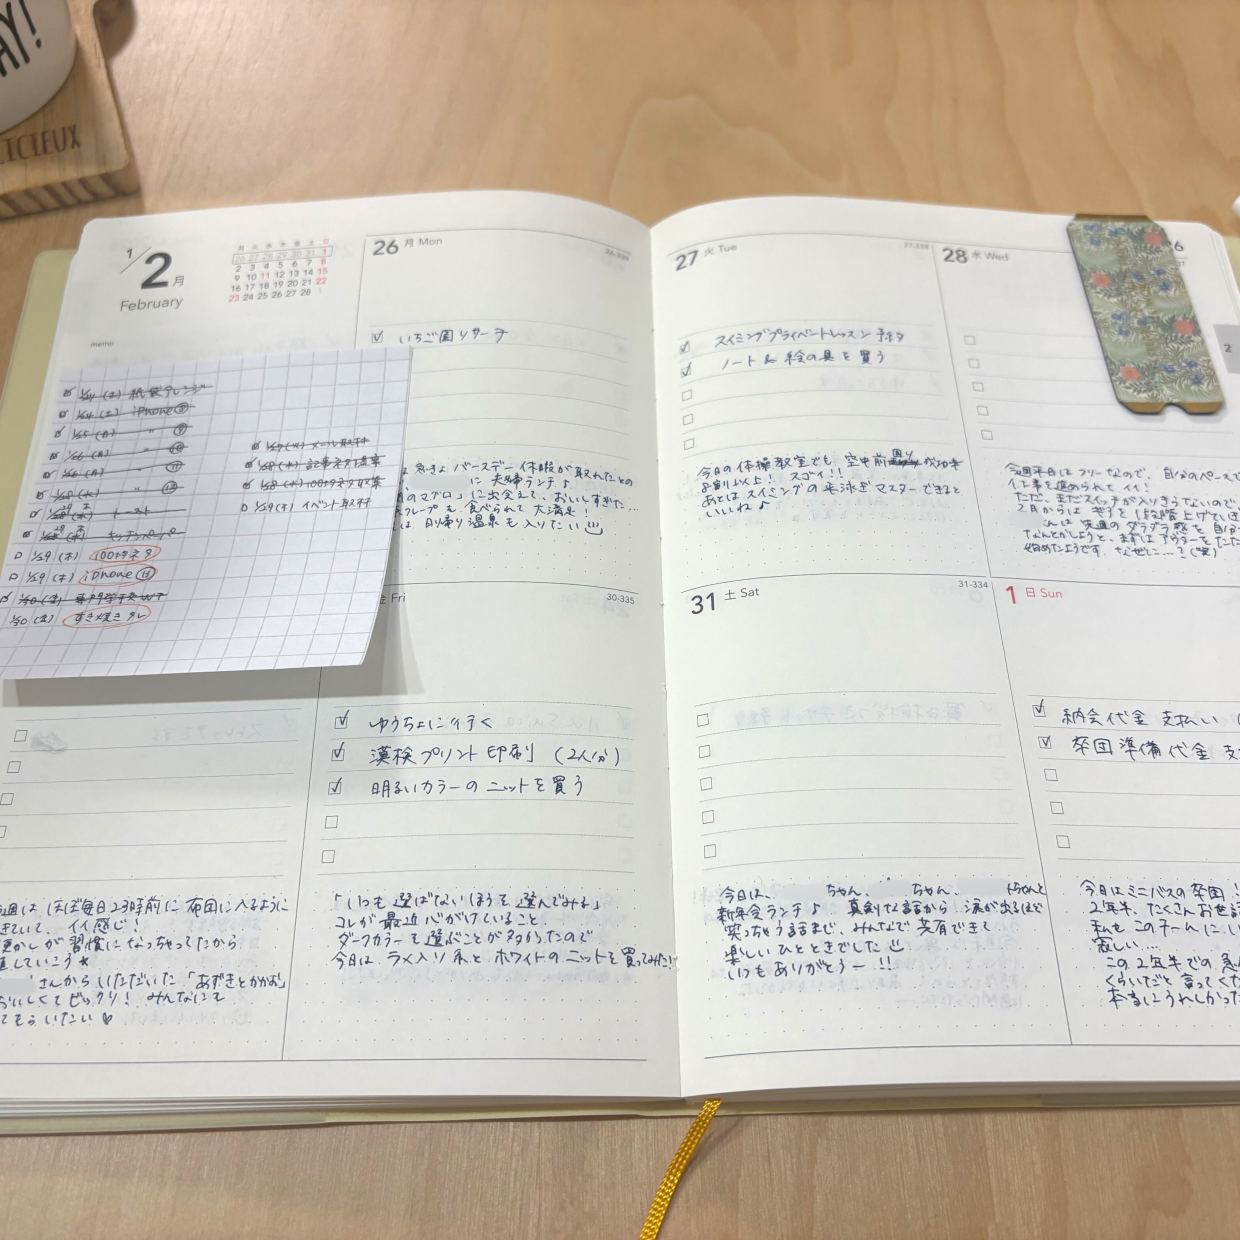 AY!
ICIEUX
1/2月
February
月 火 水 木 金 土 日
26 27 28 29 30 31 1
2 3 4 5 6 7 8
9 10 11 12 13 14 15
16 17 18 19 20 21 22
23 24 25 26 27 28 1
memo
1/24 (土) 紙袋アレンジ
1/24 (土) iPhone⑧
1/25 (日) 〃 ⑨
1/26 (月) 〃 ⑩
1/26 (月) 〃 ⑪
1/28 (水) 〃 ⑫
トースト
キッチンペーパー
1/29 (木) 100均ネタ
1/29 (木) iPhone⑬
1/30 (金)
1/30 (金) すき焼きタレ
1/27(火) メール取材
1/28(水) 記事ネタ提案
1/28(水) 100均ネタ収集
1/29(木) イベント取材
26 月 Mon
26-339
いちご園リサーチ
急きょ バースデー休暇が取れたとの
に 夫婦ランチ♪
のマグロ」に出会えて、おいしすぎた…
クレープも 食べられて 大満足!
は 日帰り温泉も入りたい
27 火 Tue
27-338
スイミングプライベートレッスン予約
ノート & 絵の具を買う
今日の体操教室でも、空中前回りが成功率
8割以上! スゴイ!!
あとはスイミングの平泳ぎマスターできると
いいね♪
28 水 Wed
今週平日はフリーなので、自分のペースで
仕事を進められてイイ!
ただ、まだスイッチが入りきらないので
2月からは ギアを1段階上げていき
んは 先週のダラダラ感を自分
なんとかしようと、まずはアウターをたた
始めたようです。なぜに…?(笑)
6
2
週は ほぼ毎日23時前に布団に入るように
きていて、イイ感じ!
更かしが習慣になっちゃってたから
直していこう★
さんから いただいた「あずきとかかお」
おいしくてビックリ! みんなにも
てもらいたい♡
金 Fri
30-335
ゆうちょに行く
漢検プリント印刷 (2人分)
明るいカラーのニットを買う
「いつも選ばないほうを選んでみる」
コレが最近心がけていること。
ダークカラーを選ぶことが多かったので
今日は、ラメ入り糸とホワイトのニットを買ってみた!!
31 土 Sat
31-334
今日は、 ちゃん、 ちゃん、 ちゃんと
新年会ランチ♪ 真剣な話から 涙が出るほど
笑っちゃう話まで、みんなで共有できて
楽しいひとときでした
いつもありがとうー!!
1 日 Sun
納会代金支払い
卒団準備代金支
今日はミニバスの卒団
2年半、たくさんお世話
私もこのチームにい
寂しい…
この2年半での急
くらいだと言ってく
本当にうれしかった